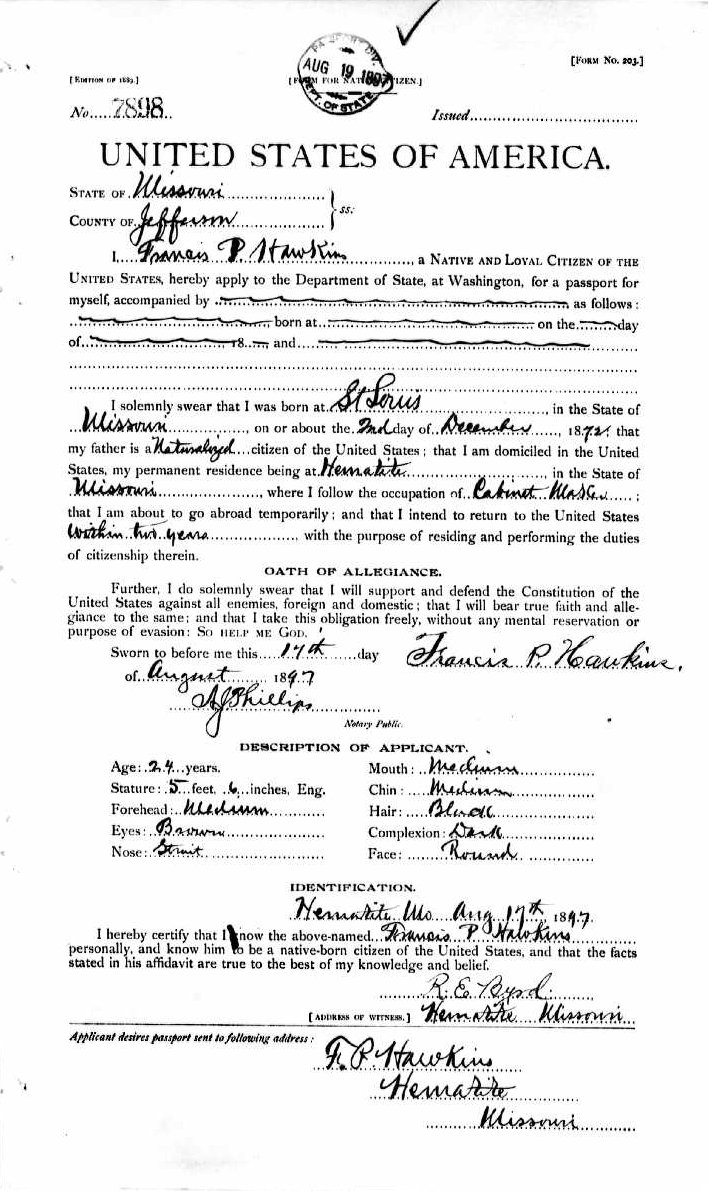 [FORM No. 203.]
[EDITION OF 1889.]
PASSPORT DIV.
AUG 19 1897
DEPT. OF STATE
[FORM FOR NATIVE CITIZEN.]
No. 7898
Issued
UNITED STATES OF AMERICA.
STATE OF Missouri
COUNTY OF Jefferson
ss:
I, Francis P. Hawkins, a NATIVE AND LOYAL CITIZEN OF THE
UNITED STATES, hereby apply to the Department of State, at Washington, for a passport for
myself, accompanied by as follows:
born at on the day
of 18 and
I solemnly swear that I was born at St Louis, in the State of
Missouri, on or about the 2nd day of December, 1872; that
my father is a Naturalized citizen of the United States; that I am domiciled in the United
States, my permanent residence being at Hematite, in the State of
Missouri, where I follow the occupation of Cabinet Maker;
that I am about to go abroad temporarily; and that I intend to return to the United States
within two years with the purpose of residing and performing the duties
of citizenship therein.
OATH OF ALLEGIANCE.
Further, I do solemnly swear that I will support and defend the Constitution of the
United States against all enemies, foreign and domestic; that I will bear true faith and alle-
giance to the same; and that I take this obligation freely, without any mental reservation or
purpose of evasion: SO HELP ME GOD.
Sworn to before me this 17th day
Francis P. Hawkins.
of August 1897
A J Phillips
Notary Public.
DESCRIPTION OF APPLICANT.
Age: 24 years. Mouth: Medium
Stature: 5 feet, 6 inches, Eng. Chin: Medium
Forehead: Medium Hair: Black
Eyes: Brown Complexion: Dark
Nose: Strait Face: Round
IDENTIFICATION.
Hematite Mo Aug 17th, 1897.
I hereby certify that I know the above-named Francis P Hawkins
personally, and know him to be a native-born citizen of the United States, and that the facts
stated in his affidavit are true to the best of my knowledge and belief.
R. E. Byrd
[ADDRESS OF WITNESS.] Hematite Missouri
Applicant desires passport sent to following address:
F. P. Hawkins
Hematite
Missouri